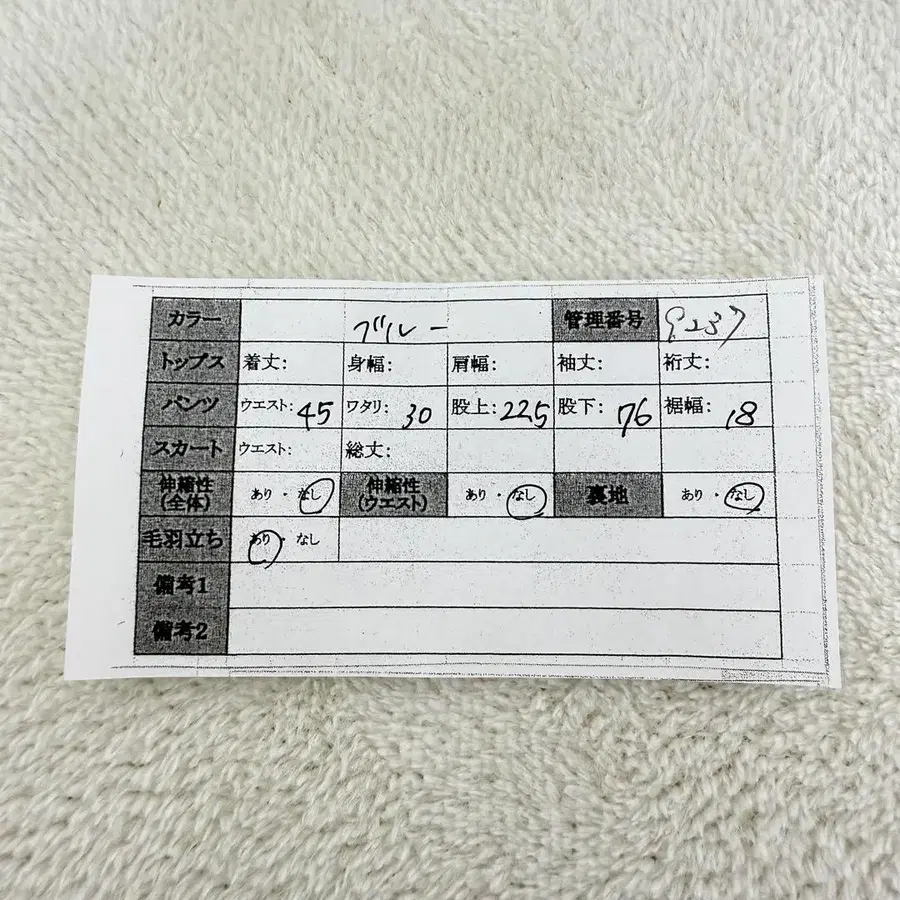 カラー ブルー 管理番号 9237
トップス 着丈: 身幅: 肩幅: 袖丈: 裄丈:
パンツ ウエスト: 45 ワタリ: 30 股上: 22.5 股下: 76 裾幅: 18
スカート ウエスト: 総丈:
伸縮性 あり・なし 伸縮性 あり・なし 裏地 あり・なし
(全体) (ウエスト)
毛羽立ち あり・なし
備考1
備考2